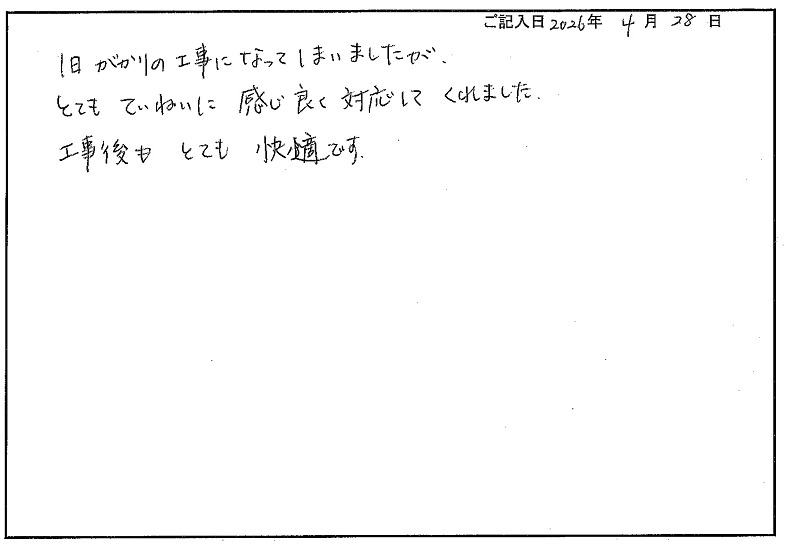 ご記入日 2026年 4月 28日
1日がかりの工事になってしまいましたが、
とても ていねいに 感じ良く 対応して くれました.
工事後も とても 快適です.